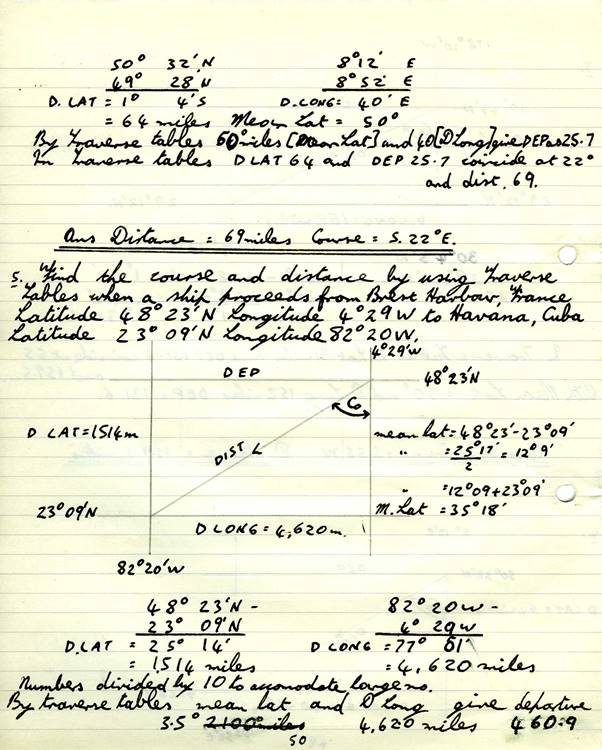 50° 32' N 8° 12' E
49° 28 N 8° 52' E
D. LAT = 1° 4' S D. LONG = 40' E
= 64 miles Mean Lat = 50°
By Traverse tables 50° miles [Mean Lat] and 40 [D Long] give DEP as 25.7
In Traverse tables D LAT 64 and DEP 25.7 coincide at 22°
and dist. 69.
Ans Distance = 69 miles Course = S. 22° E.
5. Find the course and distance by using Traverse
Tables when a ship proceeds from Brest Harbour, France
Latitude 48° 23' N Longitude 4° 29 W to Havana, Cuba
Latitude 23° 09' N Longitude 82° 20 W.
4° 29' W
DEP 48° 23' N
Co
D LAT = 1514 m
mean lat = 48° 23' - 23° 09'
DIST L
" = 25° 17' / 2 = 12° 9'
" = 12° 09 + 23° 09'
23° 09' N
M. Lat = 35° 18'
D LONG = 4,620 m.
82° 20' W
48° 23' N - 82° 20 W -
23° 09' N 4° 29 W
D. LAT = 25° 14' D LONG = 77° 51'
= 1514 miles = 4,620 miles
Numbers divided by 10 to accomodate large no.
By traverse tables mean lat and D Long give departure
3.5° 2100 miles 4,620 miles 460.9
50